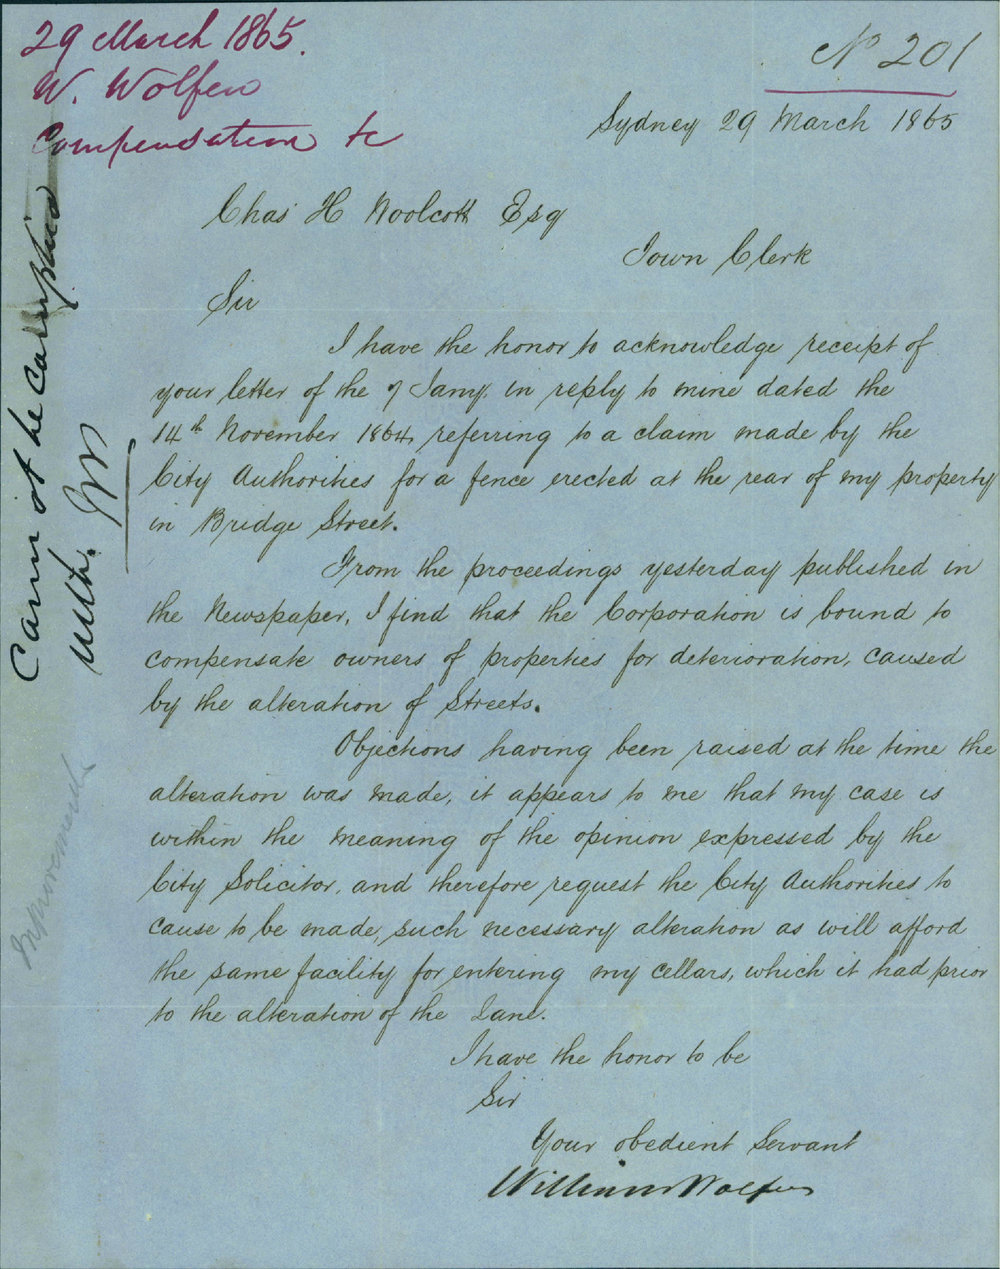 29 March 1865.
W. Wolfen
Compensation &c
No 201
Sydney 29 March 1865
Chas H Woolcott Esq
Town Clerk
Sir
I have the honor to acknowledge receipt of
your letter of the 7 Jany. in reply to mine dated the
14th November 1864, referring to a claim made by the
City Authorities for a fence erected at the rear of my property
in Bridge Street.
From the proceedings yesterday published in
the Newspaper, I find that the Corporation is bound to
compensate owners of properties for deterioration, caused
by the alteration of Streets.
Objections having been raised at the time the
alteration was made, it appears to me that my case is
within the meaning of the opinion expressed by the
City Solicitor, and therefore request the City Authorities to
cause to be made, such necessary alteration as will afford
the same facility for entering my cellars, which it had prior
to the alteration of the Lane.
I have the honor to be
Sir
Your obedient Servant
William Wolfen
Cannot be complied
with.
Improvements